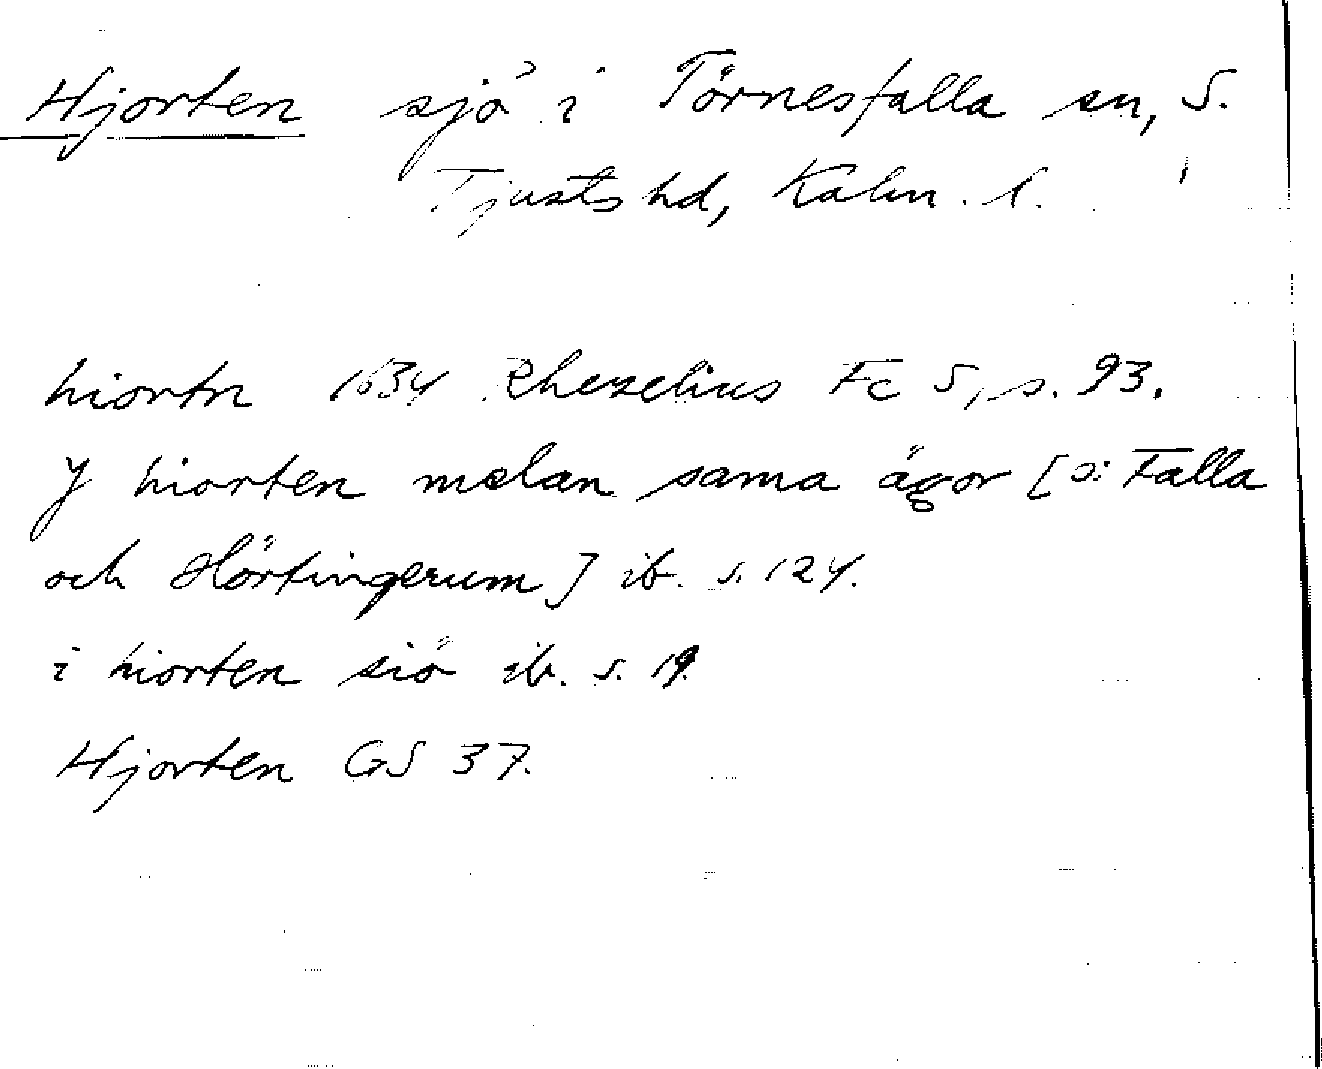 Hjorten sjö i Törnesfalla sn, S.
Tjusts hd, Kalm. l.
hiortn 1634 Rhezelius Fc 5, s. 93.
Y hiorten melan sama ägor [ɔ: Falla
och Hörtingerum] ib. s. 124.
i hiorten siö ib. s. 19.
Hjorten GS 37.